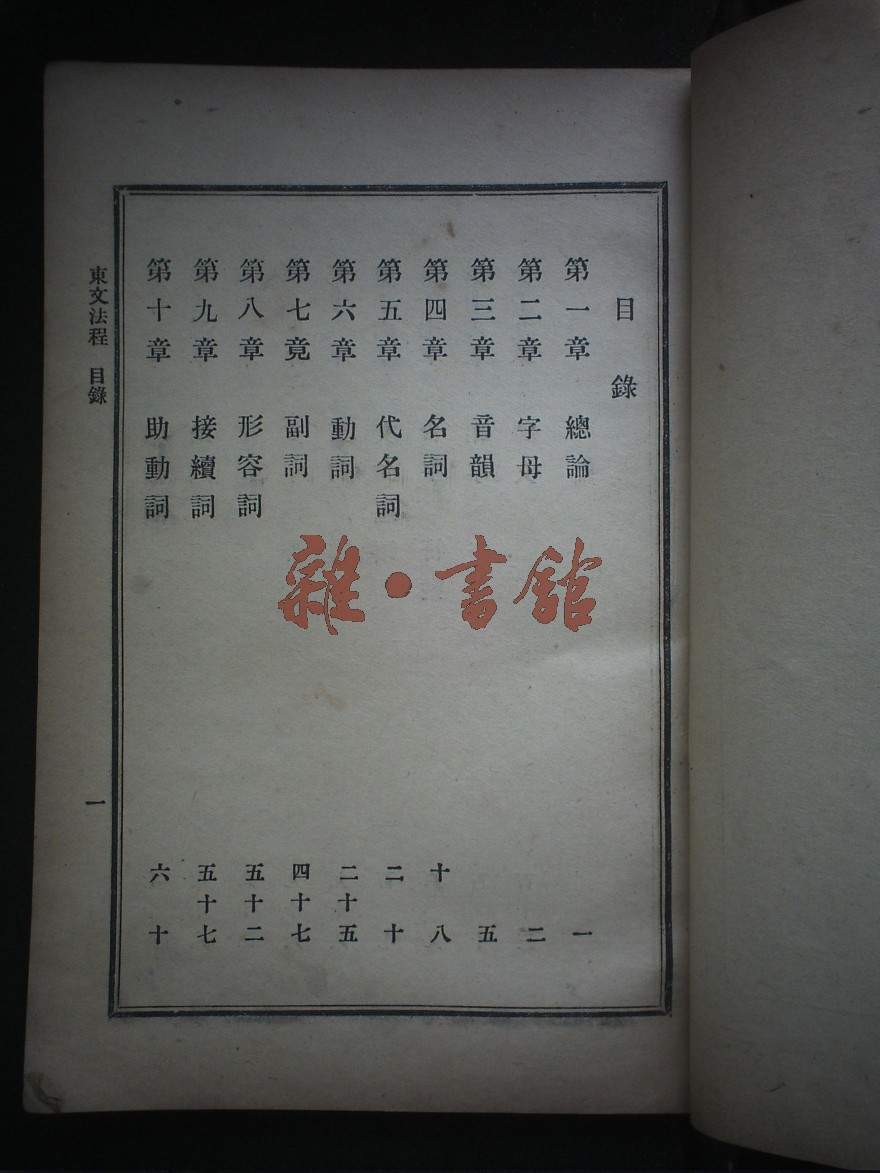 目錄
第一章 總論 一
第二章 字母 二
第三章 音韻 五
第四章 名詞 十八
第五章 代名詞 二十
第六章 動詞 二十五
第七竟 副詞 四十七
第八章 形容詞 五十二
第九章 接續詞 五十七
第十章 助動詞 六十
東文法程 目錄 一
雜·書館